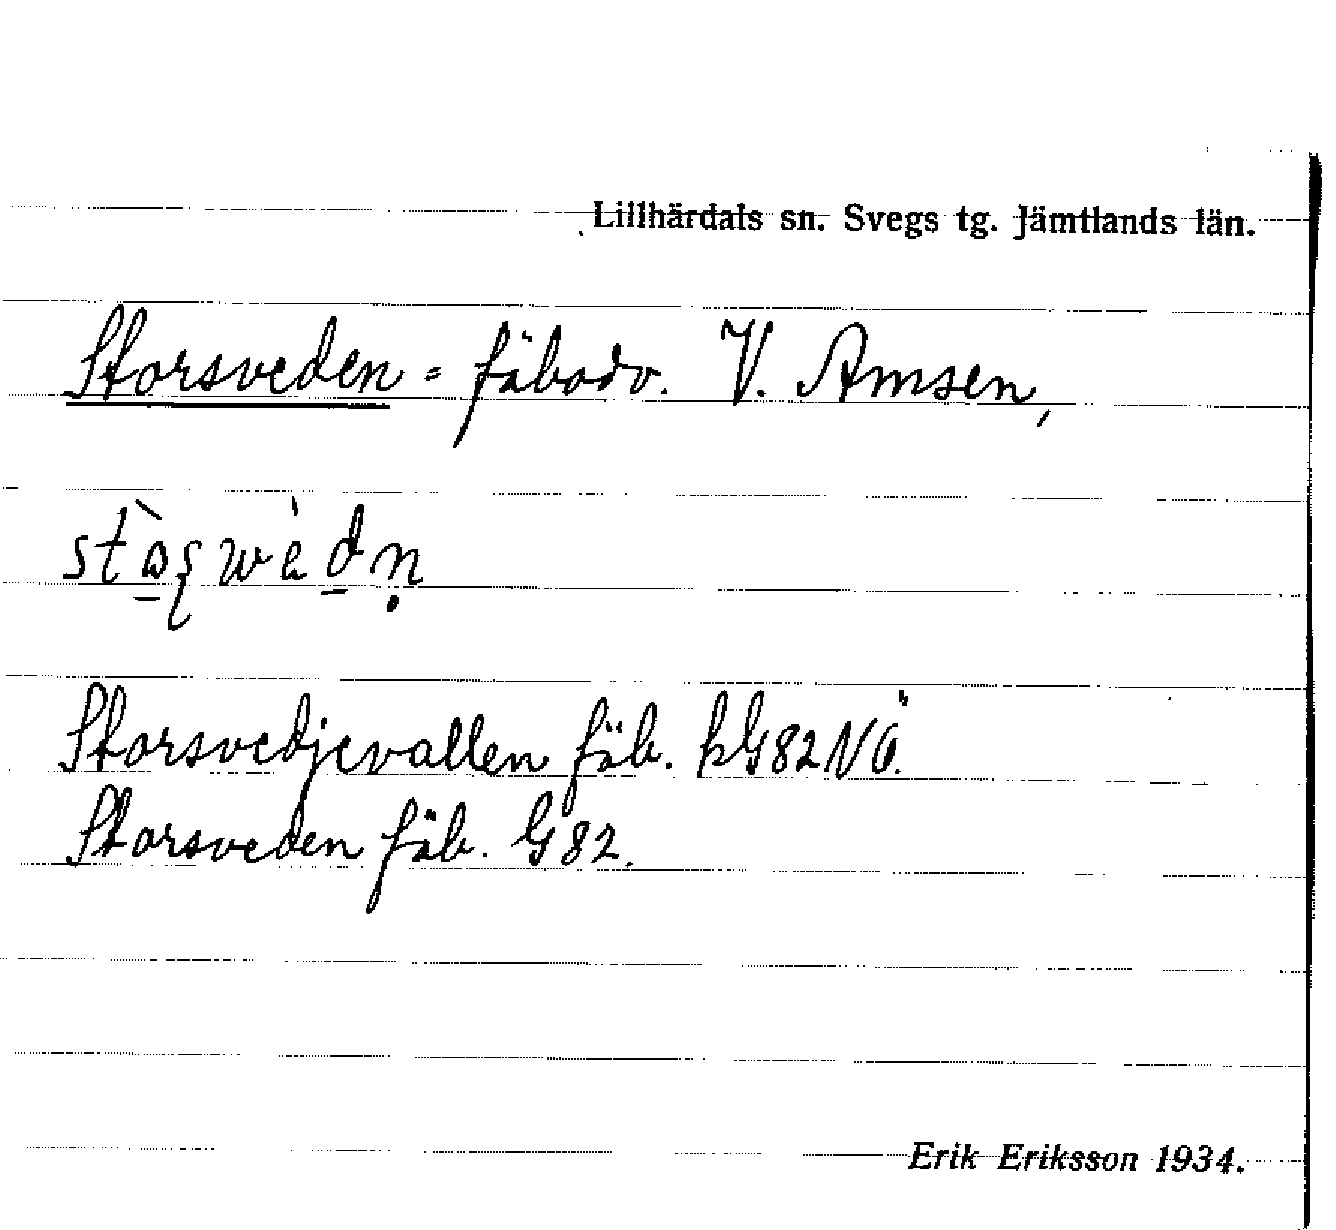 Lillhärdals sn. Svegs tg. Jämtlands län.
Storsveden = fäbodv. V. Amsen,
Storsvedjevallen fäb. kG82NÖ.
Storsveden fäb. G82.
Erik Eriksson 1934.